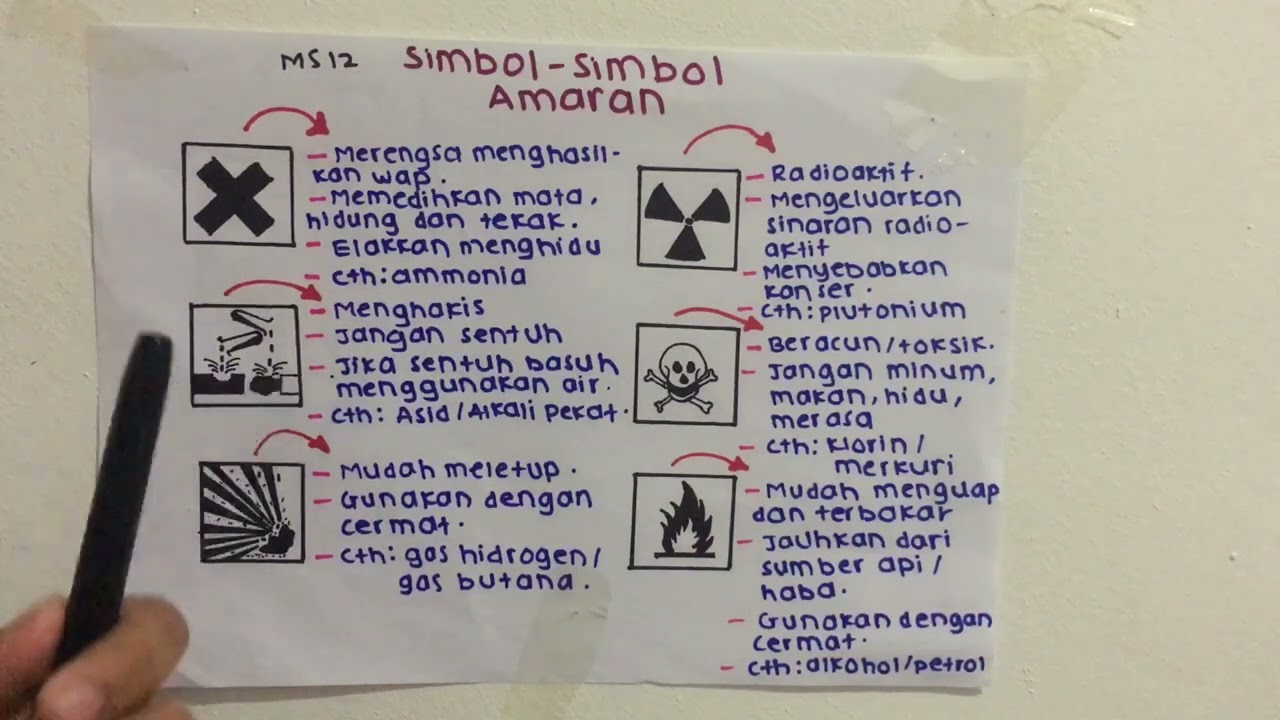 MS12 Simbol-Simbol
Amaran
- Merengsa menghasil-
kan wap.
- Memedihkan mata,
hidung dan tekak.
- Elakkan menghidu
- Cth: ammonia
- Menghakis
- Jangan sentuh
- Jika sentuh basuh
menggunakan air.
- Cth: Asid/Alkali pekat.
- Mudah meletup.
- Gunakan dengan
cermat.
- Cth: gas hidrogen/
gas butana.
- Radioaktif.
- Mengeluarkan
sinaran radio-
aktif
- Menyebabkan
kanser.
- Cth: plutonium
- Beracun/toksik.
- Jangan minum,
makan, hidu,
merasa
- Cth: Klorin/
merkuri
- Mudah menguap
dan terbakar
- Jauhkan dari
sumber api/
haba.
- Gunakan dengan
cermat.
- Cth: alkohol/petrol